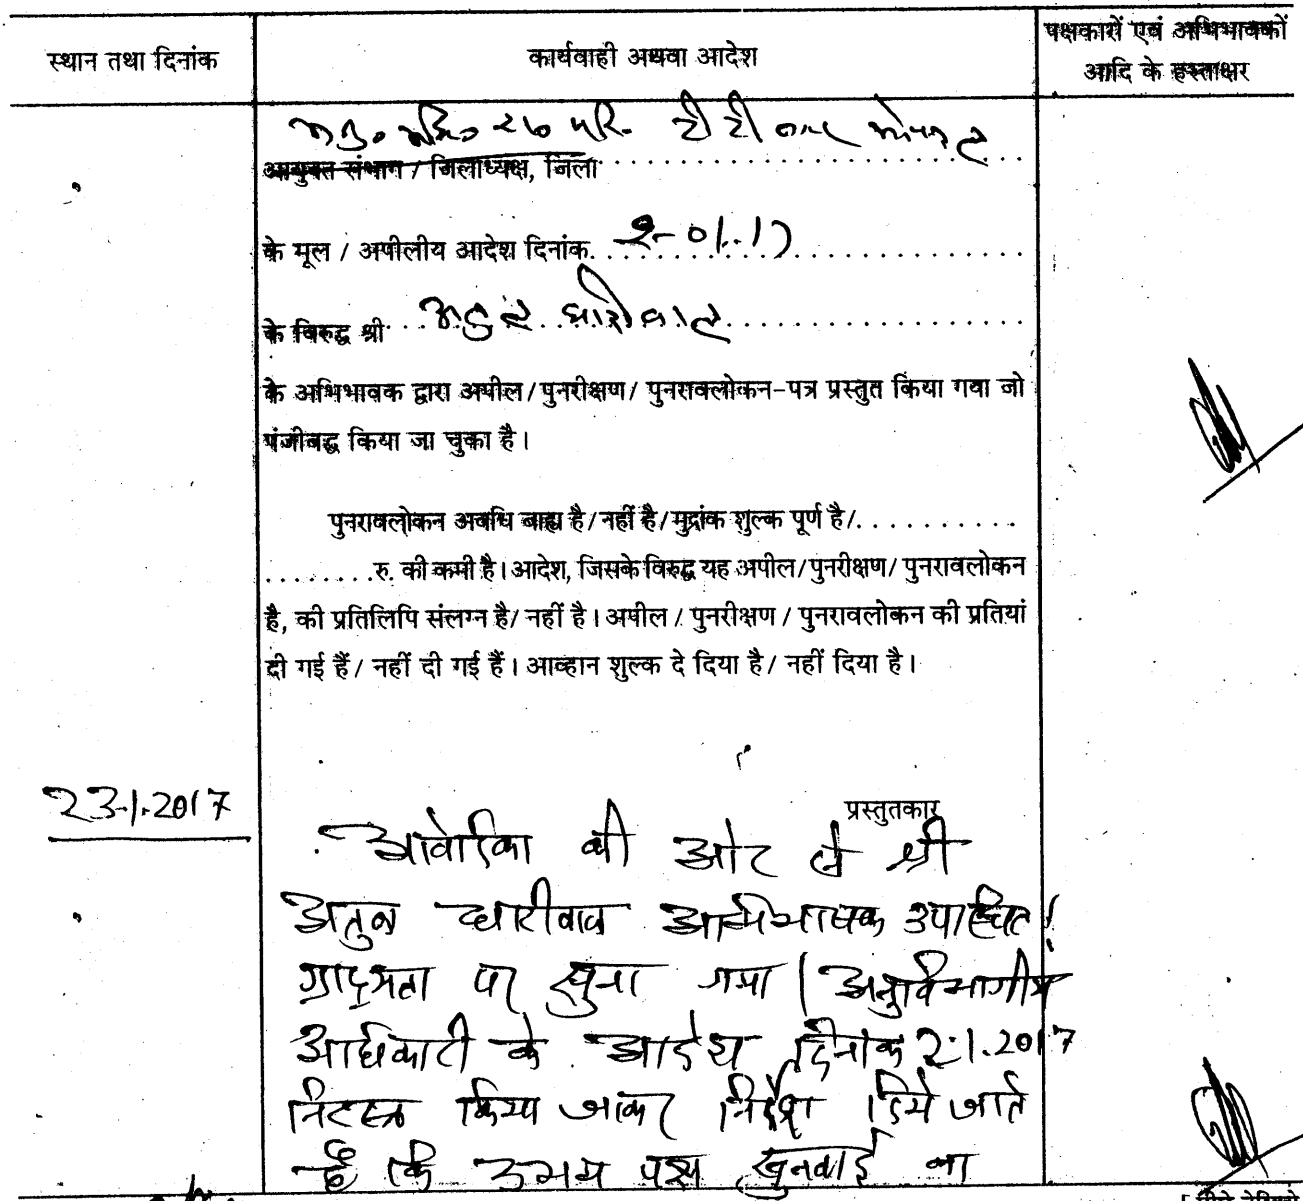 स्थान तथा दिनांक
कार्यवाही अथवा आदेश
पक्षकारों एवं अभिभावकों
आदि के हस्ताक्षर
अनु० अधि० टी टी नगर भोपाल
आयुक्त संभाग / जिलाध्यक्ष, जिला
के मूल / अपीलीय आदेश दिनांक 2-01-17
के विरुद्ध श्री अतुल धारीवाल
के अभिभावक द्वारा अपील/पुनरीक्षण/ पुनरावलोकन-पत्र प्रस्तुत किया गया जो
पंजीबद्ध किया जा चुका है।
पुनरावलोकन अवधि बाह्य है/नहीं है/मुद्रांक शुल्क पूर्ण है/..........
........रु. की कमी है। आदेश, जिसके विरुद्ध यह अपील/पुनरीक्षण/ पुनरावलोकन
है, की प्रतिलिपि संलग्न है/ नहीं है। अपील / पुनरीक्षण / पुनरावलोकन की प्रतियां
दी गई हैं/ नहीं दी गई हैं। आव्हान शुल्क दे दिया है/ नहीं दिया है।
प्रस्तुतकार
23.1.2017
आवेदिका की ओर से श्री
अतुल धारीवाल अभिभाषक उपस्थित।
ग्राह्यता पर सुना गया। अनुविभागीय
अधिकारी के आदेश दिनांक 2.1.2017
निरस्त किया जाकर निर्देश दिये जाते
है कि उभय पक्ष सुनवाई का